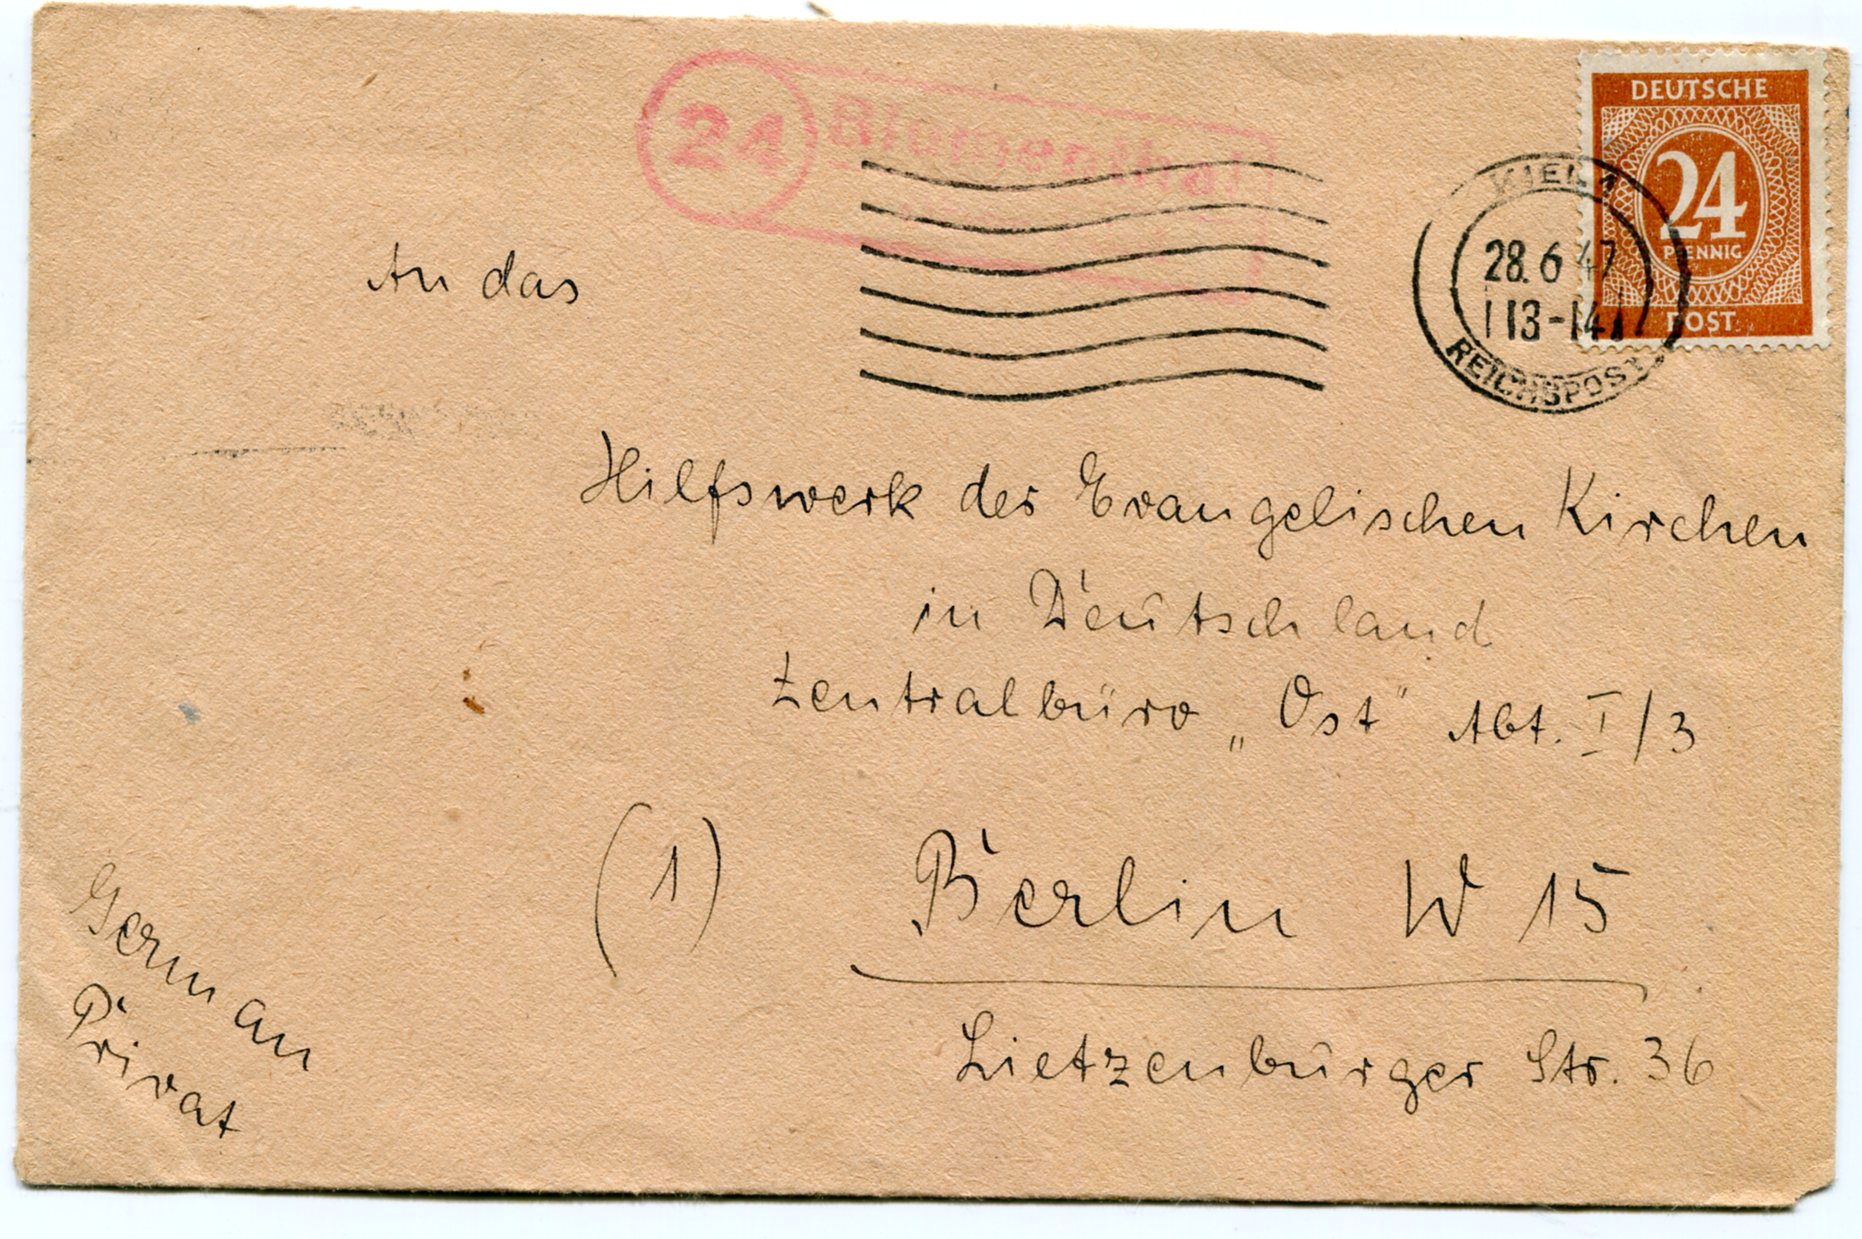 24 Blumenthal
DEUTSCHE
24
PFENNIG
POST
KIEL 1
28.6 47
13-14
REICHSPOST
An das
Hilfswerk der Evangelischen Kirchen
in Deutschland
Zentralbüro „Ost" Abt. I/3
(1) Berlin W 15
Lietzenburger Str. 36
German
Privat